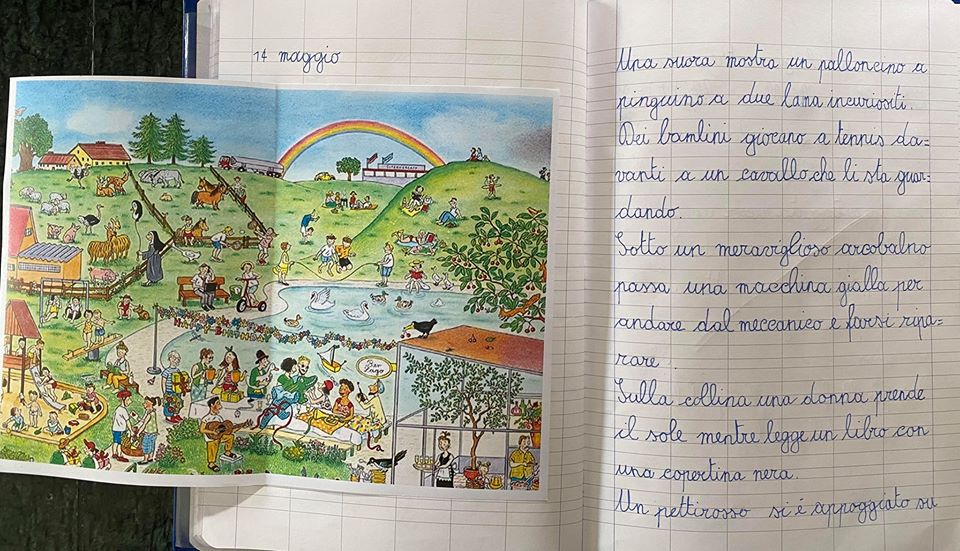 14 maggio
SUPERMERCATO
Bar
Lago
Una suora mostra un palloncino a
pinguino a due lama incuriositi.
Dei bambini giocano a tennis da=
vanti a un cavallo che li sta guar=
dando.
Sotto un meraviglioso arcobalno
passa una macchina gialla per
andare dal meccanico e farsi ripa=
rare.
Sulla collina una donna prende
il sole mentre legge un libro con
una copertina nera.
Un pettirosso si é appoggiato su